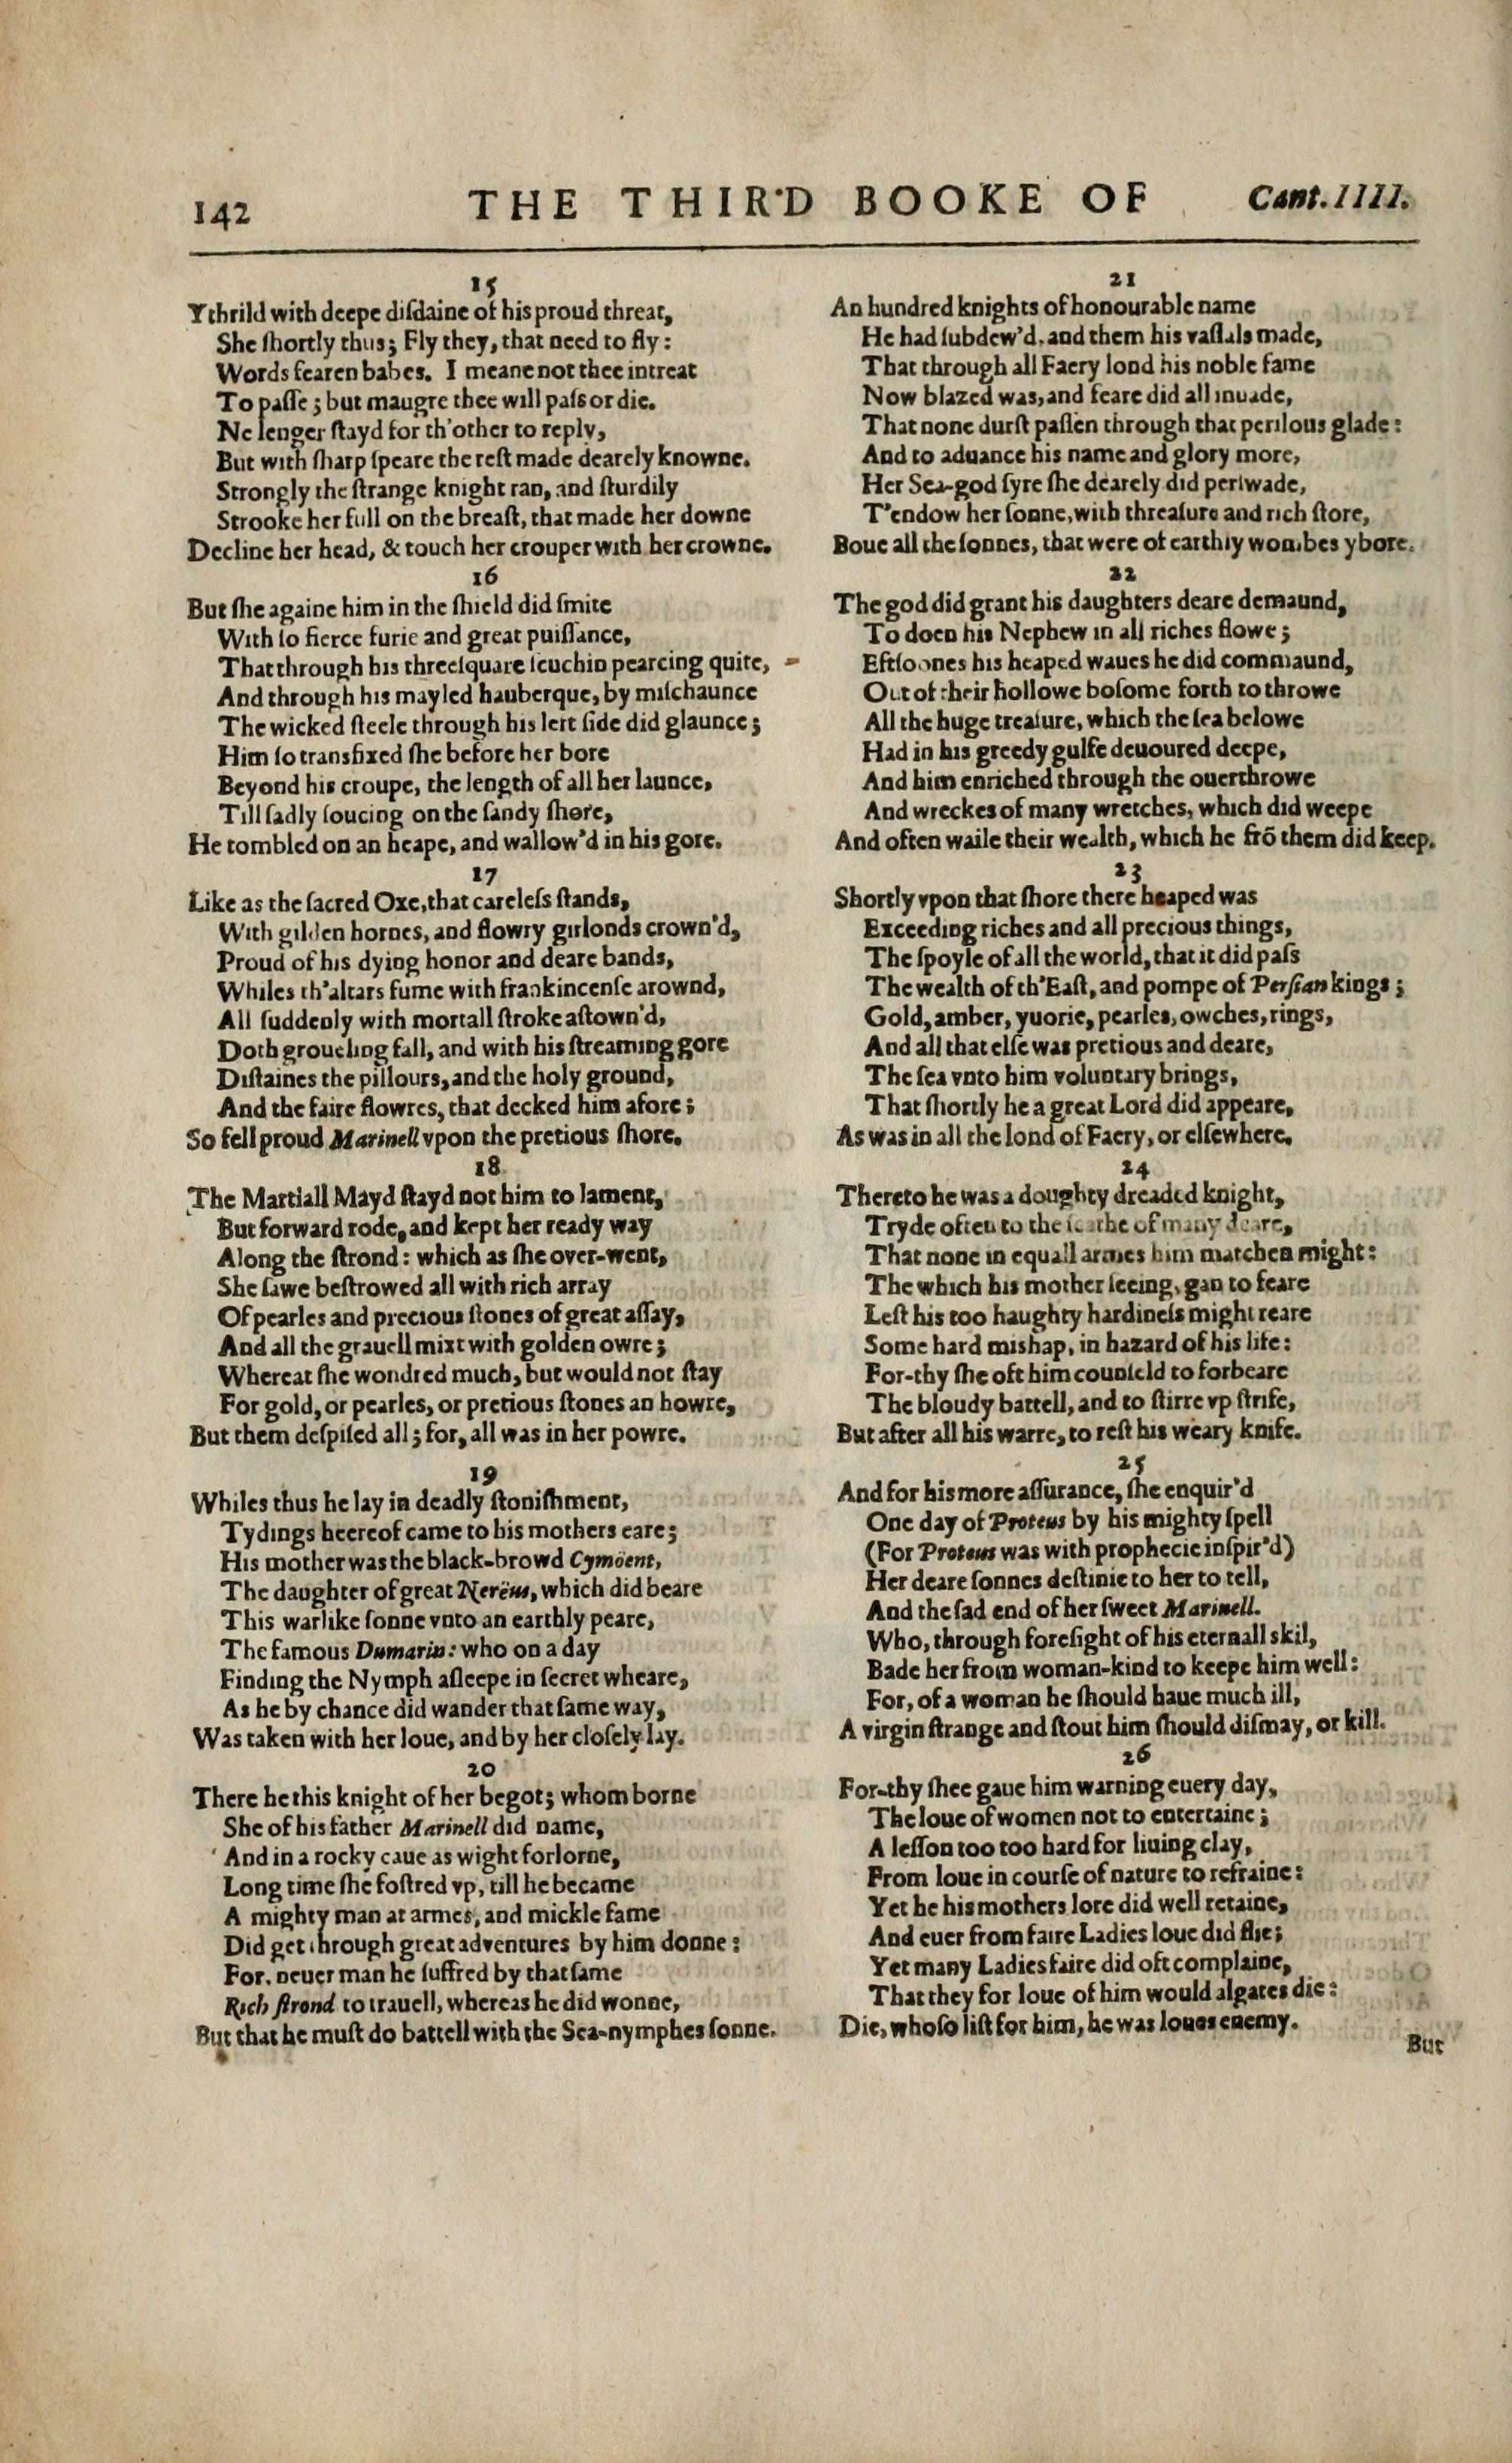 142 THE THIRD BOOKE OF Cant. IIII.
15
Ythrild with deepe diſdaine of his proud threat,
She ſhortly thus; Fly they, that need to fly:
Words fearen babes. I meane not thee intreat
To paſſe; but maugre thee will paſs or die.
Ne lenger ſtayd for th'other to reply,
But with ſharp ſpeare the reſt made dearely knowne.
Strongly the ſtrange knight ran, and ſturdily
Strooke her full on the breaſt, that made her downe
Decline her head, & touch her crouper with her crowne.
16
But ſhe againe him in the ſhield did ſmite
With ſo fierce furie and great puiſſance,
That through his threeſquare ſcuchin pearcing quite,
And through his mayled hauberque, by miſchaunce
The wicked ſteele through his left ſide did glaunce;
Him ſo transfixed ſhe before her bore
Beyond his croupe, the length of all her launce,
Till ſadly ſoucing on the ſandy ſhore,
He tombled on an heape, and wallow'd in his gore.
17
Like as the ſacred Oxe, that careleſs ſtands,
With gilden hornes, and flowry girlonds crown'd,
Proud of his dying honor and deare bands,
Whiles th'altars fume with frankincenſe arownd,
All ſuddenly with mortall ſtroke aſtown'd,
Doth groueling fall, and with his ſtreaming gore
Diſtaines the pillours, and the holy ground,
And the faire flowres, that decked him afore;
So fell proud Marinell vpon the pretious ſhore.
18
The Martiall Mayd ſtayd not him to lament,
But forward rode, and kept her ready way
Along the ſtrond: which as ſhe over-went,
She ſawe beſtrowed all with rich array
Of pearles and precious ſtones of great aſſay,
And all the grauell mixt with golden owre;
Whereat ſhe wondred much, but would not ſtay
For gold, or pearles, or pretious ſtones an howre,
But them deſpiſed all; for, all was in her powre.
19
Whiles thus he lay in deadly ſtoniſhment,
Tydings heereof came to his mothers eare;
His mother was the black-browd Cymöent,
The daughter of great Nerëus, which did beare
This warlike ſonne vnto an earthly peare,
The famous Dumarin: who on a day
Finding the Nymph aſleepe in ſecret wheare,
As he by chance did wander that ſame way,
Was taken with her loue, and by her cloſely lay.
20
There he this knight of her begot; whom borne
She of his father Marinell did name,
And in a rocky caue as wight forlorne,
Long time ſhe foſtred vp, till he became
A mighty man at armes, and mickle fame
Did get through great adventures by him donne:
For, neuer man he ſuffred by that ſame
Rich ſtrond to trauell, whereas he did wonne,
But that he muſt do battell with the Sea-nymphes ſonne.
21
An hundred knights of honourable name
He had ſubdew'd, and them his vaſſals made,
That through all Faery lond his noble fame
Now blazed was, and feare did all inuade,
That none durſt paſſen through that perilous glade:
And to aduance his name and glory more,
Her Sea-god ſyre ſhe dearely did perſwade,
T'endow her ſonne, with threaſure and rich ſtore,
Boue all the ſonnes, that were of earthly wombes ybore.
22
The god did grant his daughters deare demaund,
To doen his Nephew in all riches flowe;
Eftſoones his heaped waues he did commaund,
Out of their hollowe boſome forth to throwe
All the huge treaſure, which the ſea belowe
Had in his greedy gulfe deuoured deepe,
And him enriched through the ouerthrowe
And wreckes of many wretches, which did weepe
And often waile their wealth, which he frõ them did keep.
23
Shortly vpon that ſhore there heaped was
Exceeding riches and all precious things,
The ſpoyle of all the world, that it did paſs
The wealth of th'Eaſt, and pompe of Perſian kings;
Gold, amber, yuorie, pearles, owches, rings,
And all that elſe was pretious and deare,
The ſea vnto him voluntary brings,
That ſhortly he a great Lord did appeare,
As was in all the lond of Faery, or elſewhere.
24
Thereto he was a doughty dreaded knight,
Tryde often to the ſcathe of many deare,
That none in equall armes him matchen might:
The which his mother ſeeing, gan to feare
Leſt his too haughty hardineſs might reare
Some hard mishap, in hazard of his life:
For-thy ſhe oft him counſeld to forbeare
The bloudy battell, and to ſtirre vp ſtrife,
But after all his warre, to reſt his weary knife.
25
And for his more aſſurance, ſhe enquir'd
One day of Proteus by his mighty ſpell
(For Proteus was with prophecie inſpir'd)
Her deare ſonnes deſtinie to her to tell,
And the ſad end of her ſweet Marinell.
Who, through foreſight of his eternall skil,
Bade her from woman-kind to keepe him well:
For, of a woman he ſhould haue much ill,
A virgin ſtrange and ſtout him ſhould diſmay, or kill.
26
For-thy ſhee gaue him warning euery day,
The loue of women not to entertaine;
A leſſon too too hard for liuing clay,
From loue in courſe of nature to refraine:
Yet he his mothers lore did well retaine,
And euer from faire Ladies loue did flie;
Yet many Ladies faire did oft complaine,
That they for loue of him would algates die:
Die, whoſo liſt for him, he was loues enemy.
But